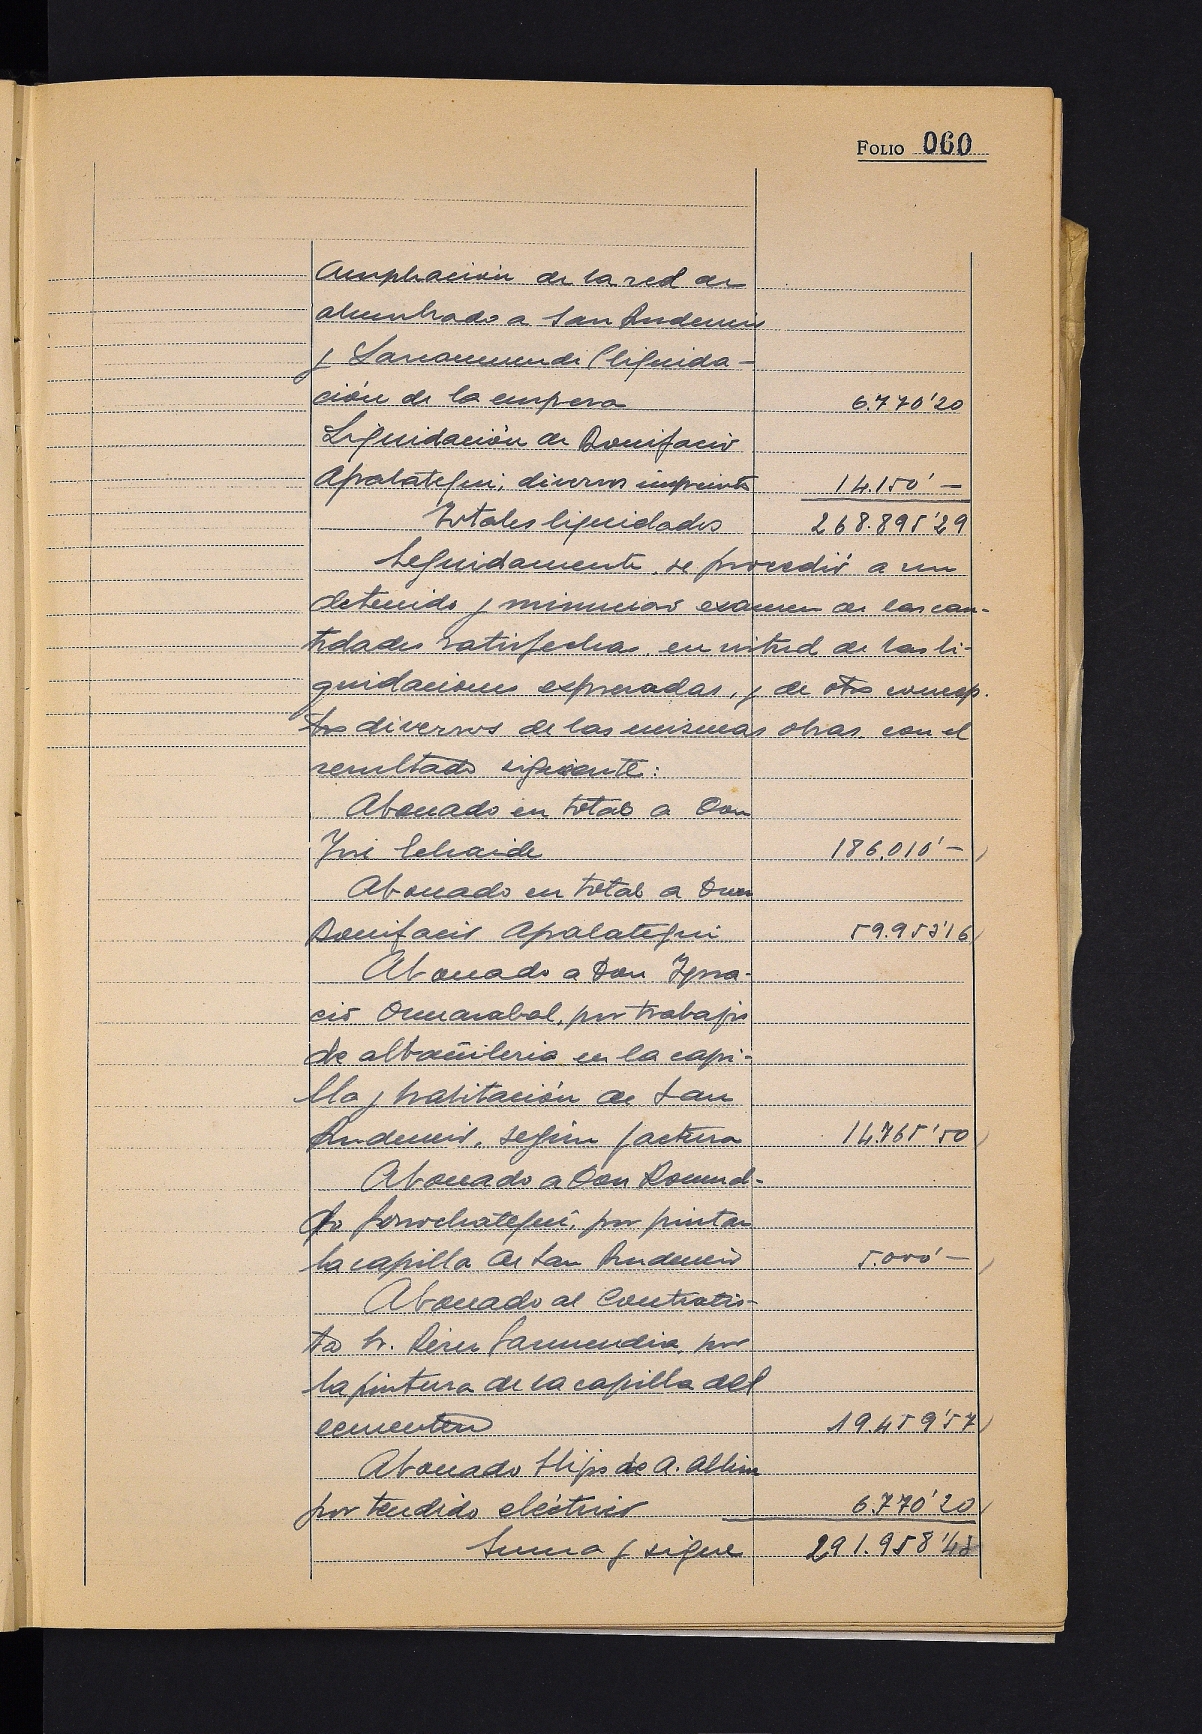 FOLIO 060
Ampliación de la red de
alumbrado a San Prudencio
y Larramendi (liquida-
ción de la empresa 6.770'20
Liquidación de Bonifacio
Apalategui, diversos 14.150'—
Totales liquidados 268.895'29
Seguidamente, se procedió a un
detenido y minucioso examen de las can-
tidades satisfechas, en virtud de las li-
quidaciones expresadas, y de otros concep-
tos diversos de las mismas obras, con el
resultado siguiente:
Abonado en total a Don
José Echaide 186.010'—
Abonado en total a Don
Bonifacio Apalategui 59.953'16
Abonado a Don Igna-
cio por trabajos
de albañileria en la capi-
lla y habitación de San
Prudencio, según factura 14.765'50
Abonado a Don Romual-
do Gorrochategui, por pintar
la capilla de San Prudencio 5.000'—
Abonado al Contratis-
ta Sr. Pérez Garmendia, por
la pintura de la capilla del
cementerio 19.459'57
Abonado Hijos de A. Albin
por tendido eléctrico 6.770'20
Suma y sigue 291.958'43